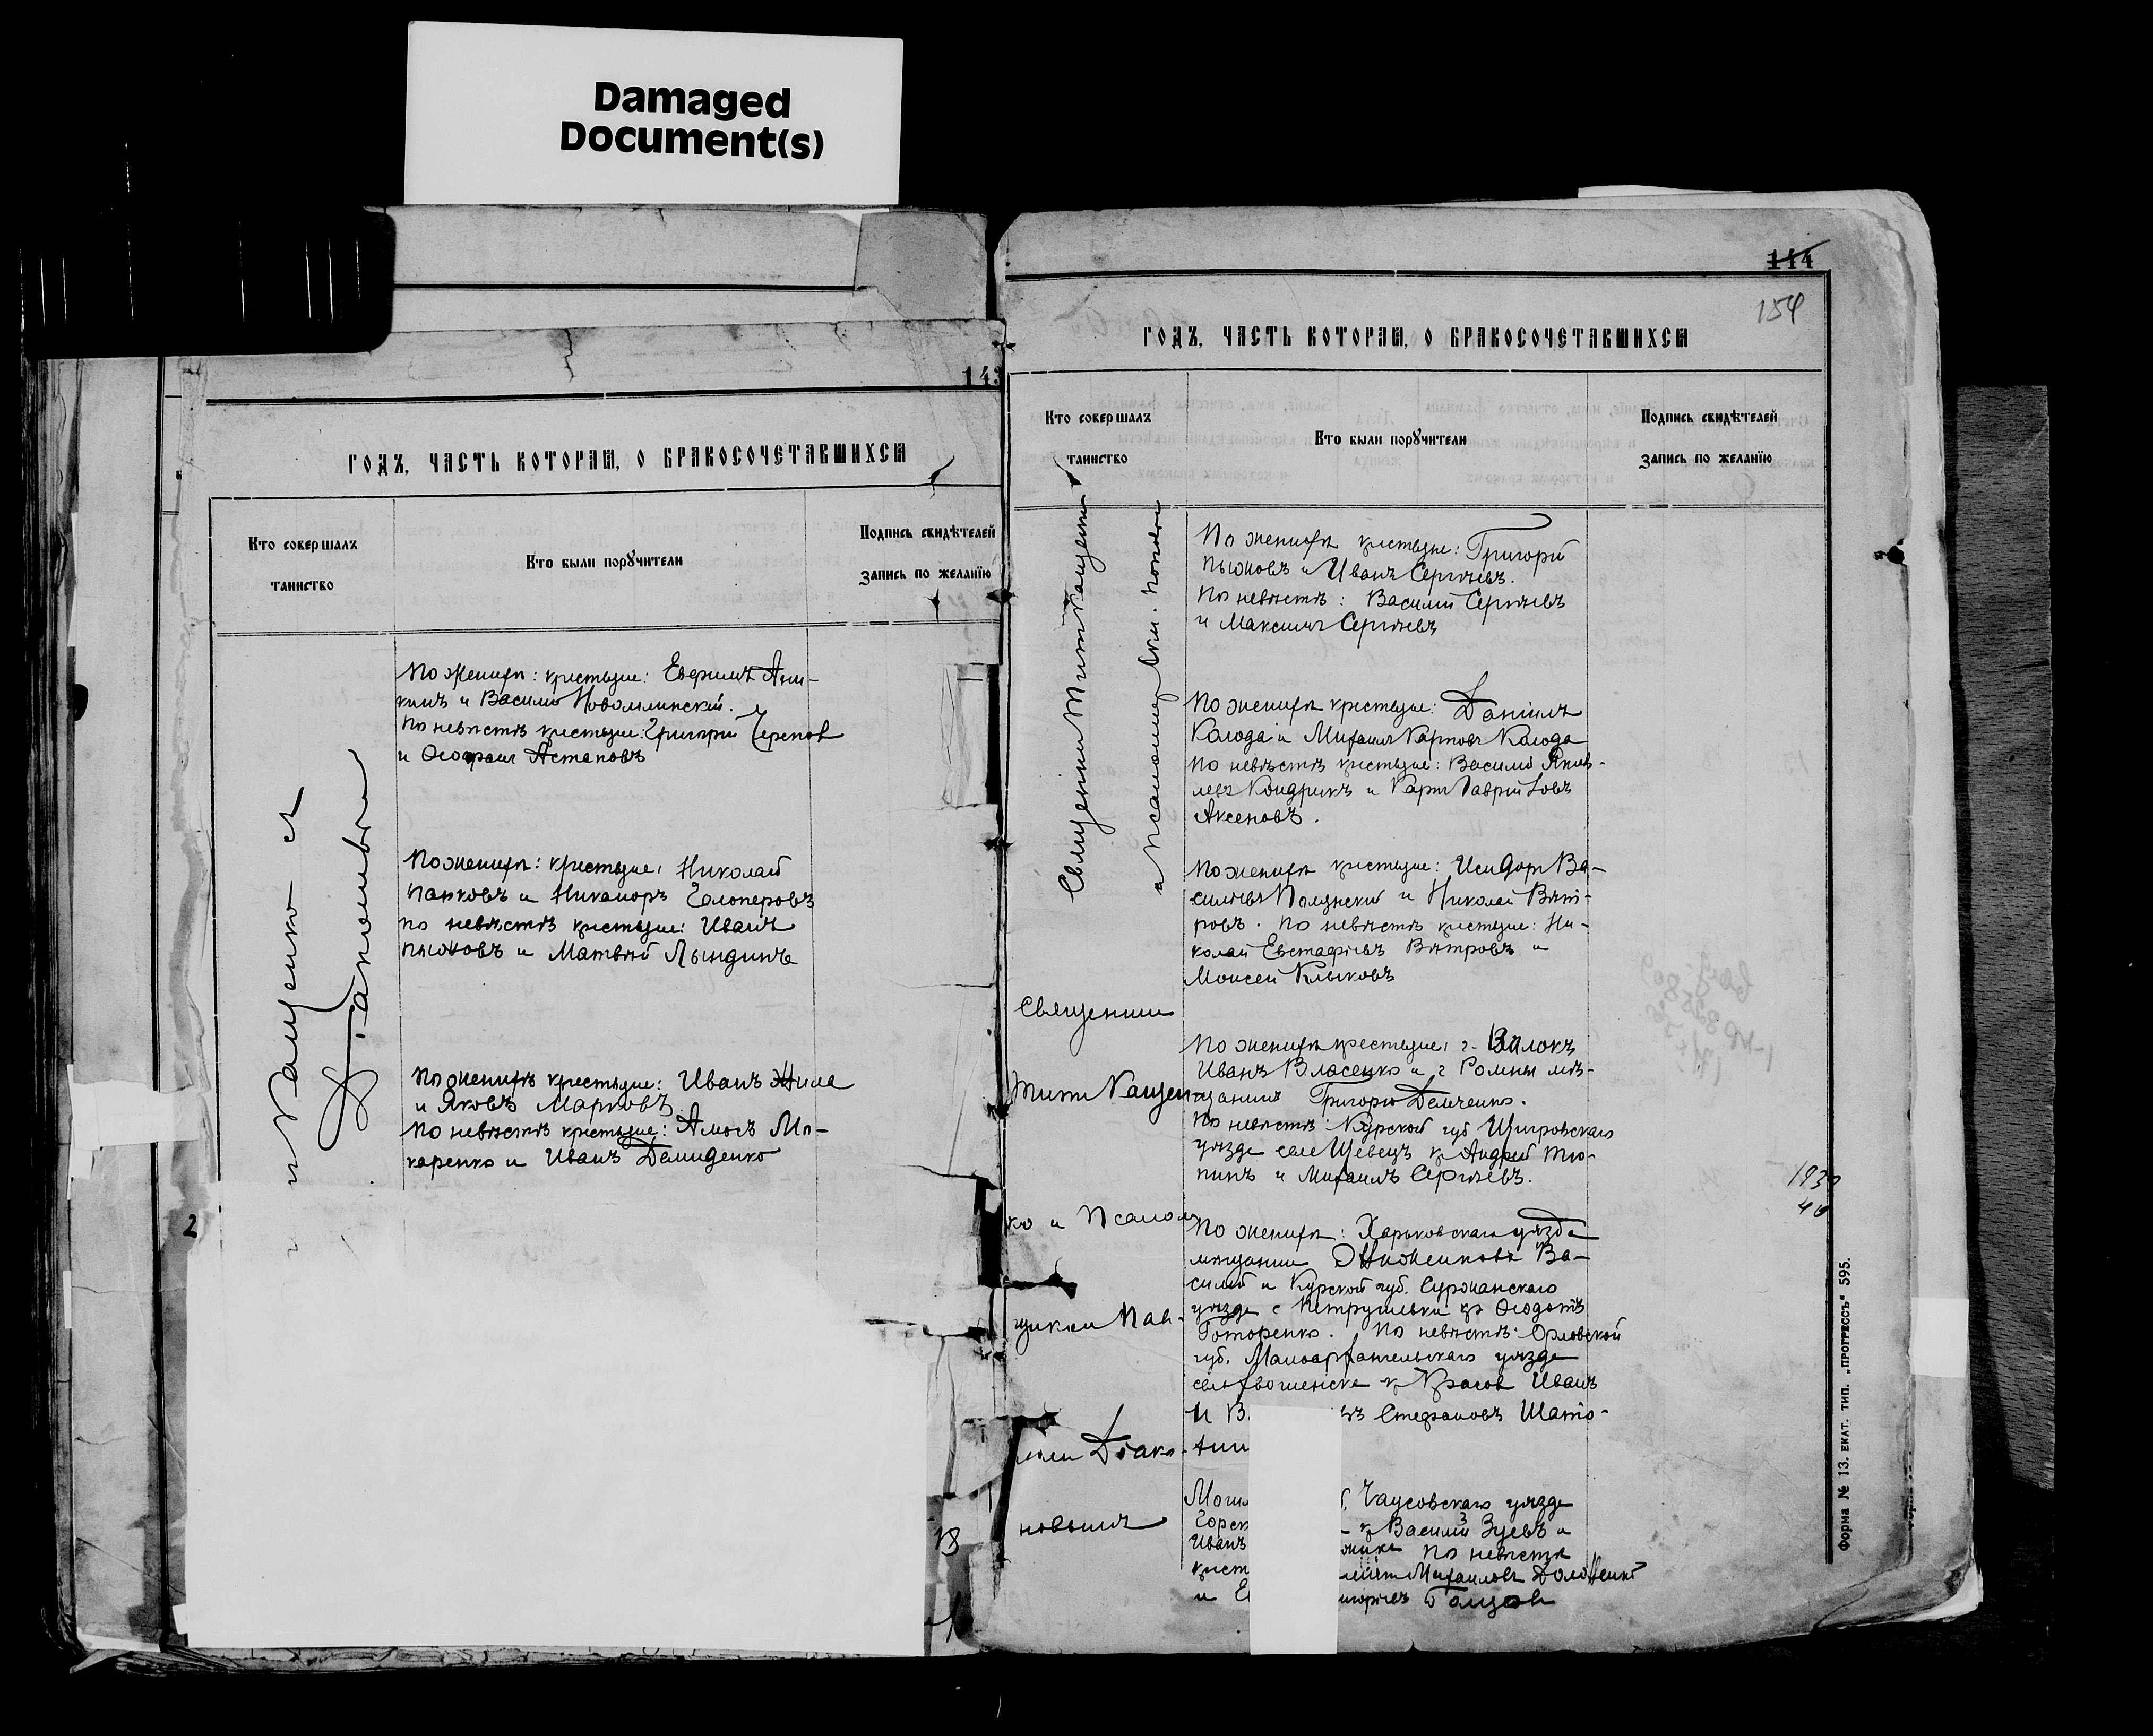 Damaged
Document(s)
143
годъ, часть которая, о бракосочетавшихся
Кто совершалъ
таинство
Кто были поручители
Подпись свидѣтелей
запись по желанію
По женихѣ: крестьяне: Евфимъ Ани-
кинъ и Василій Новомлинскій.
По невѣстѣ крестьяне: Григорій Черепов
и Феофанъ Астаповъ
По женихѣ: крестьяне: Николай
Панковъ и Никаноръ
по невѣстѣ крестьяне: Иванъ
Пьяновъ и Матвѣй Лындинъ
По женихѣ крестьяне: Иванъ Жила
и Яковъ Марковъ
По невѣстѣ крестьяне: Амосъ Ма-
каренко и Иванъ Демиденко
и Кащенко
2
144
154
годъ, часть которая, о бракосочетавшихся
Кто совершалъ
таинство
Кто были поручители
Подпись свидѣтелей
запись по желанію
Священники Титъ Кащенко
и Псаломщ.
По женихѣ крестьяне: Григорій
Пьяновъ и Иванъ Сергѣевъ.
По невѣстѣ: Василій Сергѣевъ
и Максимъ Сергѣевъ
По женихѣ крестьяне: Даніилъ
Колода и Михаилъ Карповъ Колода
по невѣстѣ крестьяне: Василій Яков-
левъ Кондрикъ и Карпъ Гавриловъ
Аксеновъ.
По женихѣ крестьяне: Исидоръ Ва-
сильевъ и Николай Вѣт-
ровъ. по невѣстѣ крестьяне: Ни-
колай Евстафіевъ Вѣтровъ и
Моисей Клыковъ
Священник
Титъ Кащен-
ко и Псалом
щикъ Пав-
Діако-
новымъ
По женихѣ крестьяне: г. Валокъ
Иванъ Власенко и г. Ромны мѣ-
щанинъ Григорій Демченко.
По невѣстѣ: Курской губ Щигровскаго
уѣзда села Шевецъ кр Андрей Тю-
пинъ и Михаилъ Сергѣевъ.
По женихѣ: Харьковскаго уѣзда
мѣщанин Ва-
силій и Курской губ. Суджанскаго
уѣзда с Петрушевки кр Феодотъ
Готоренко. По невѣстѣ: Орловской
губ. Малоархангельскаго уѣзда
кр Красов Иванъ
и В Стефановъ Шато-
Чаусовскаго уѣзда
Горск кр Василій Зуевъ и
Иванъ по невѣстѣ
крест Михаиловъ
и Е
193
40
Форма № 13. ЕКАТ. ТИП. „ПРОГРЕССЪ“ 595.